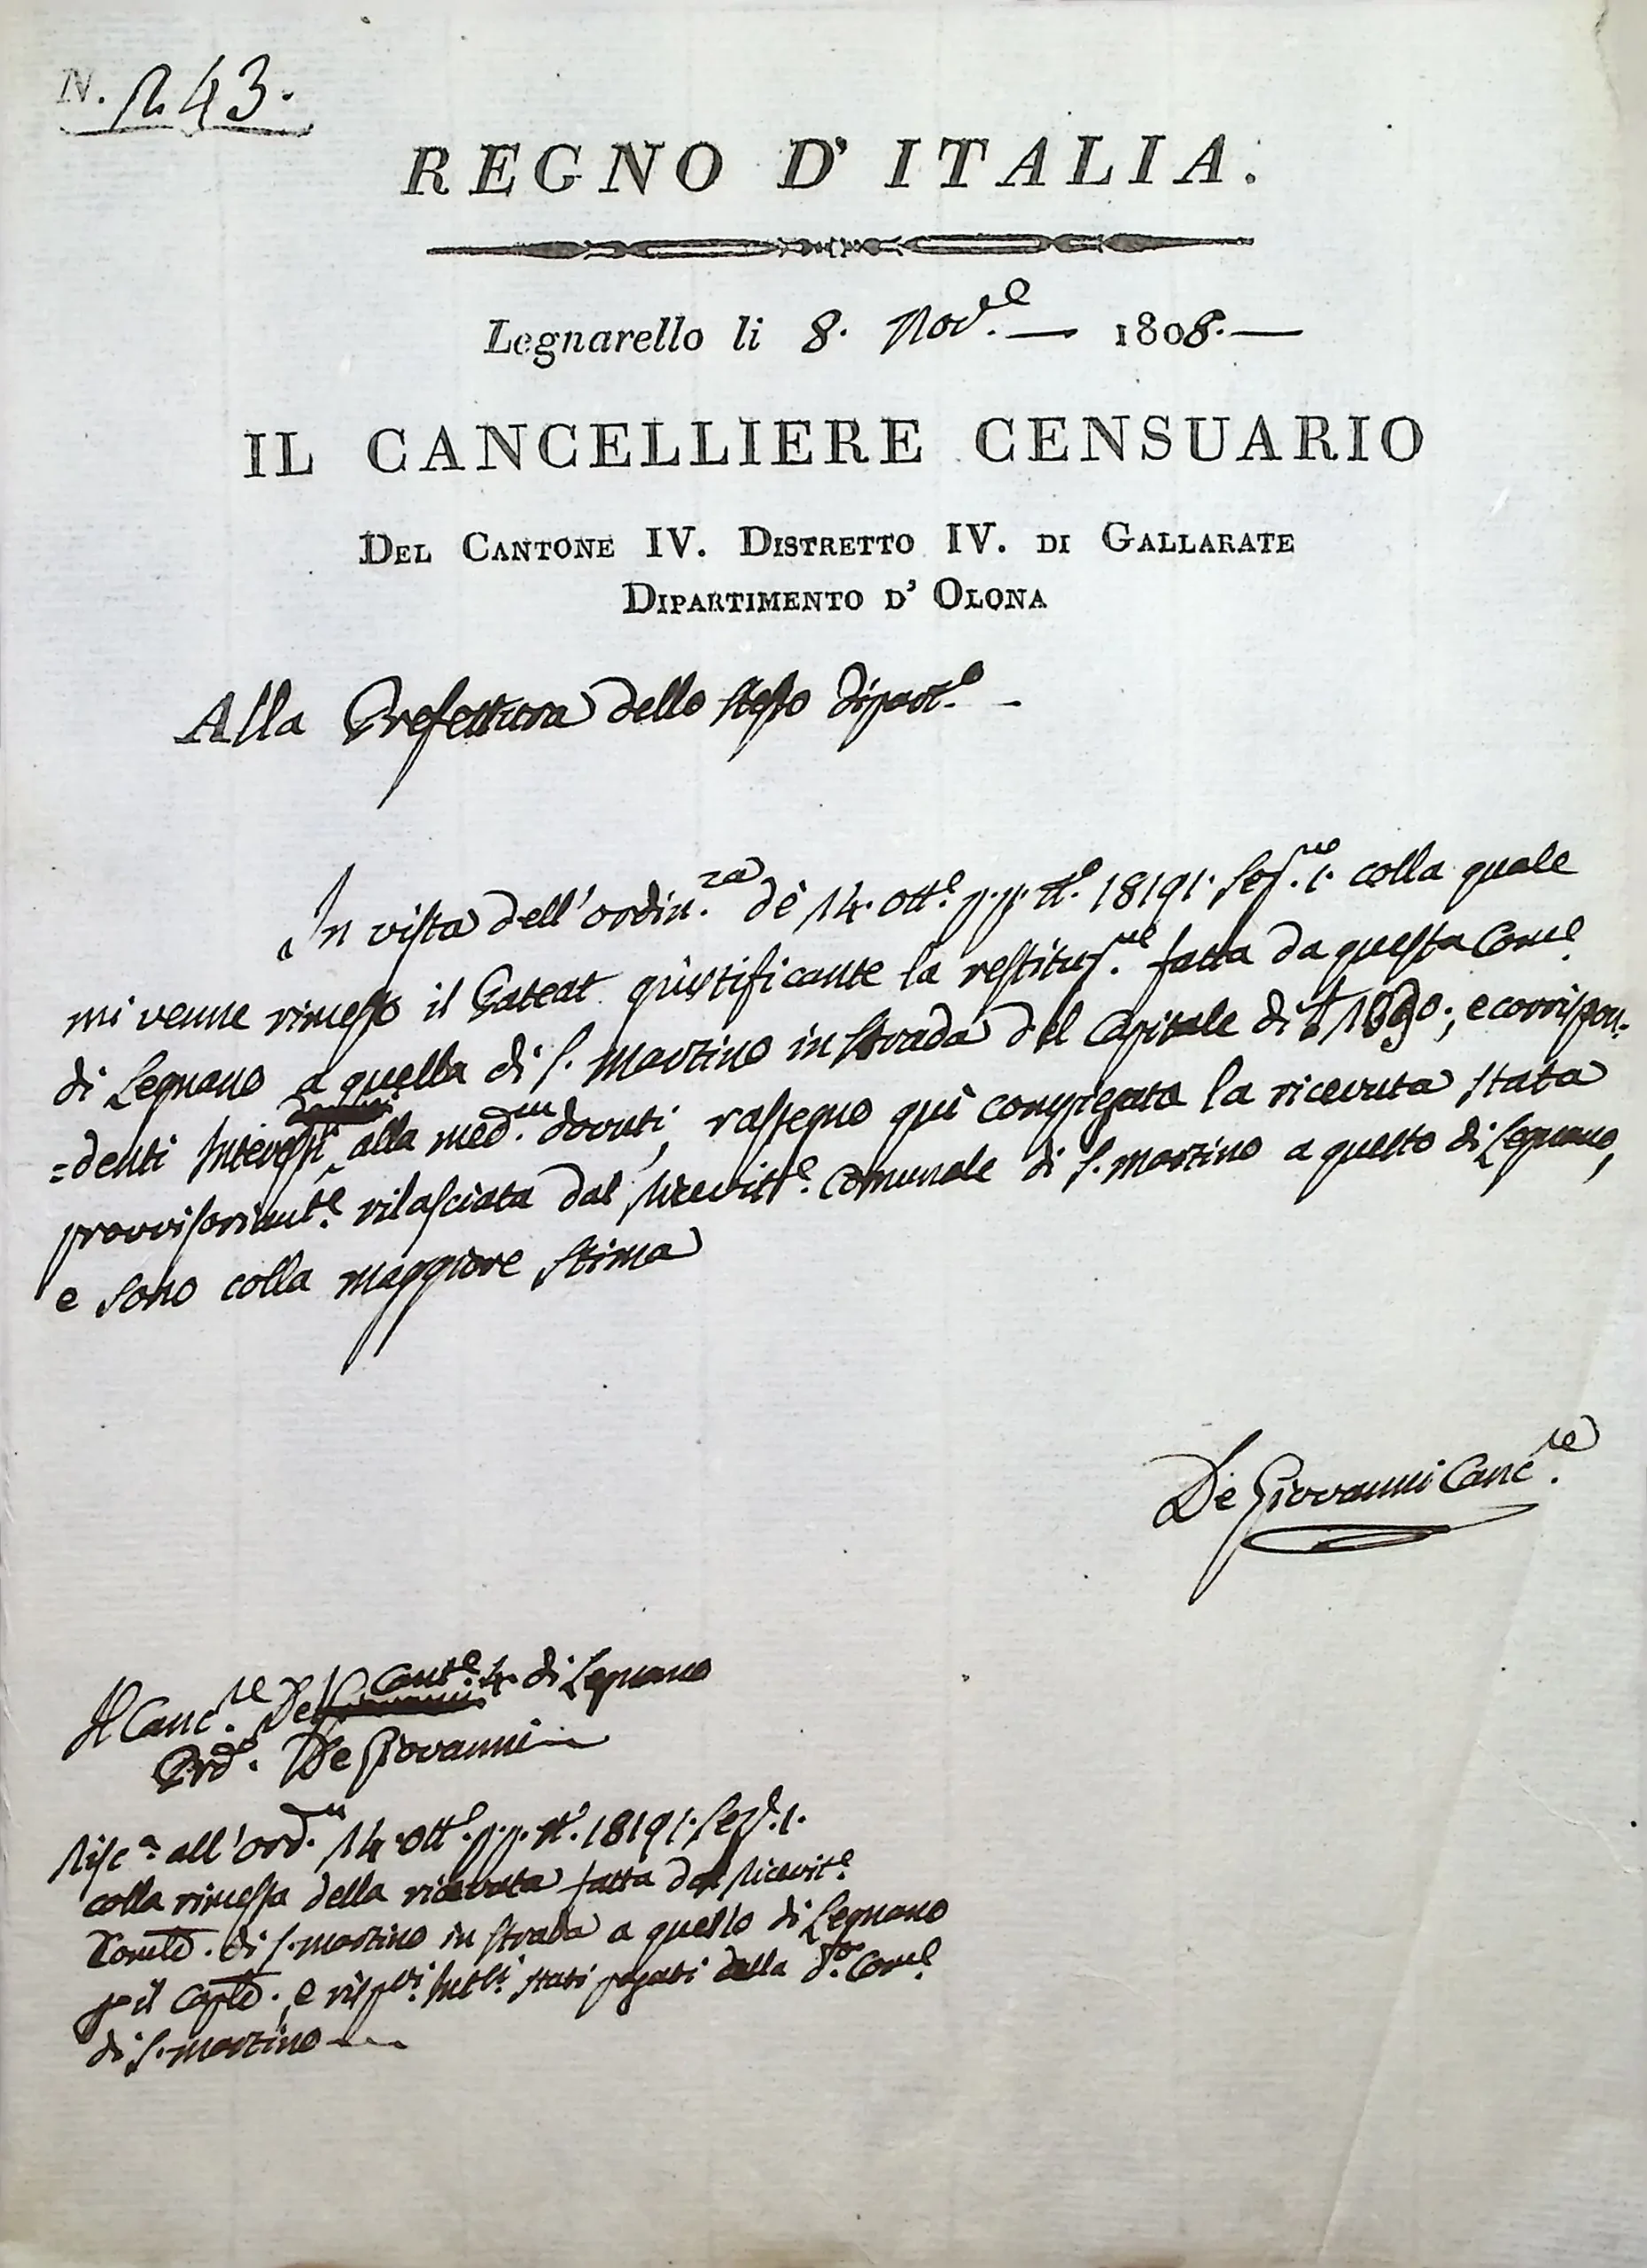 N. 1243.
REGNO D' ITALIA.
Legnarello li 8. Nov.e — 1808. —
IL CANCELLIERE CENSUARIO
DEL CANTONE IV. DISTRETTO IV. DI GALLARATE
DIPARTIMENTO D' OLONA
Alla Prefettura dello stesso Dipart.o -
In vista dell' ordin.za dè 14. Ott.e p.p. N.o 18191. Sez.ne 1. colla quale
mi venne rimesso il giustificante la restituz.ne fatta da questa Com.e
di Legnano a quella di S. Martino in Strada del Capitale di , e corrispon-
=denti Interessi alla med.ma dovuti, rassegno quì compiegata la ricevuta stata
provvisoriam.te rilasciata dal Ricevitt.e Comunale di S. Martino a questo di Legnano,
e sono colla maggiore stima
De Giovanni Canc.re
Il Canc.re Del Cant.e 4. di Legnano
De Giovanni
all' ord.za 14. Ott.e p.p. N.o 18191. Sez.e 1.
colla rimessa della ricevuta fatta dal Ricevit.e
Comle. di S. Martino in Strada a quello di Legnano
p il Caple. e rispvi. Intssi. stati pagati dalla d.a Com.e
di S. Martino —